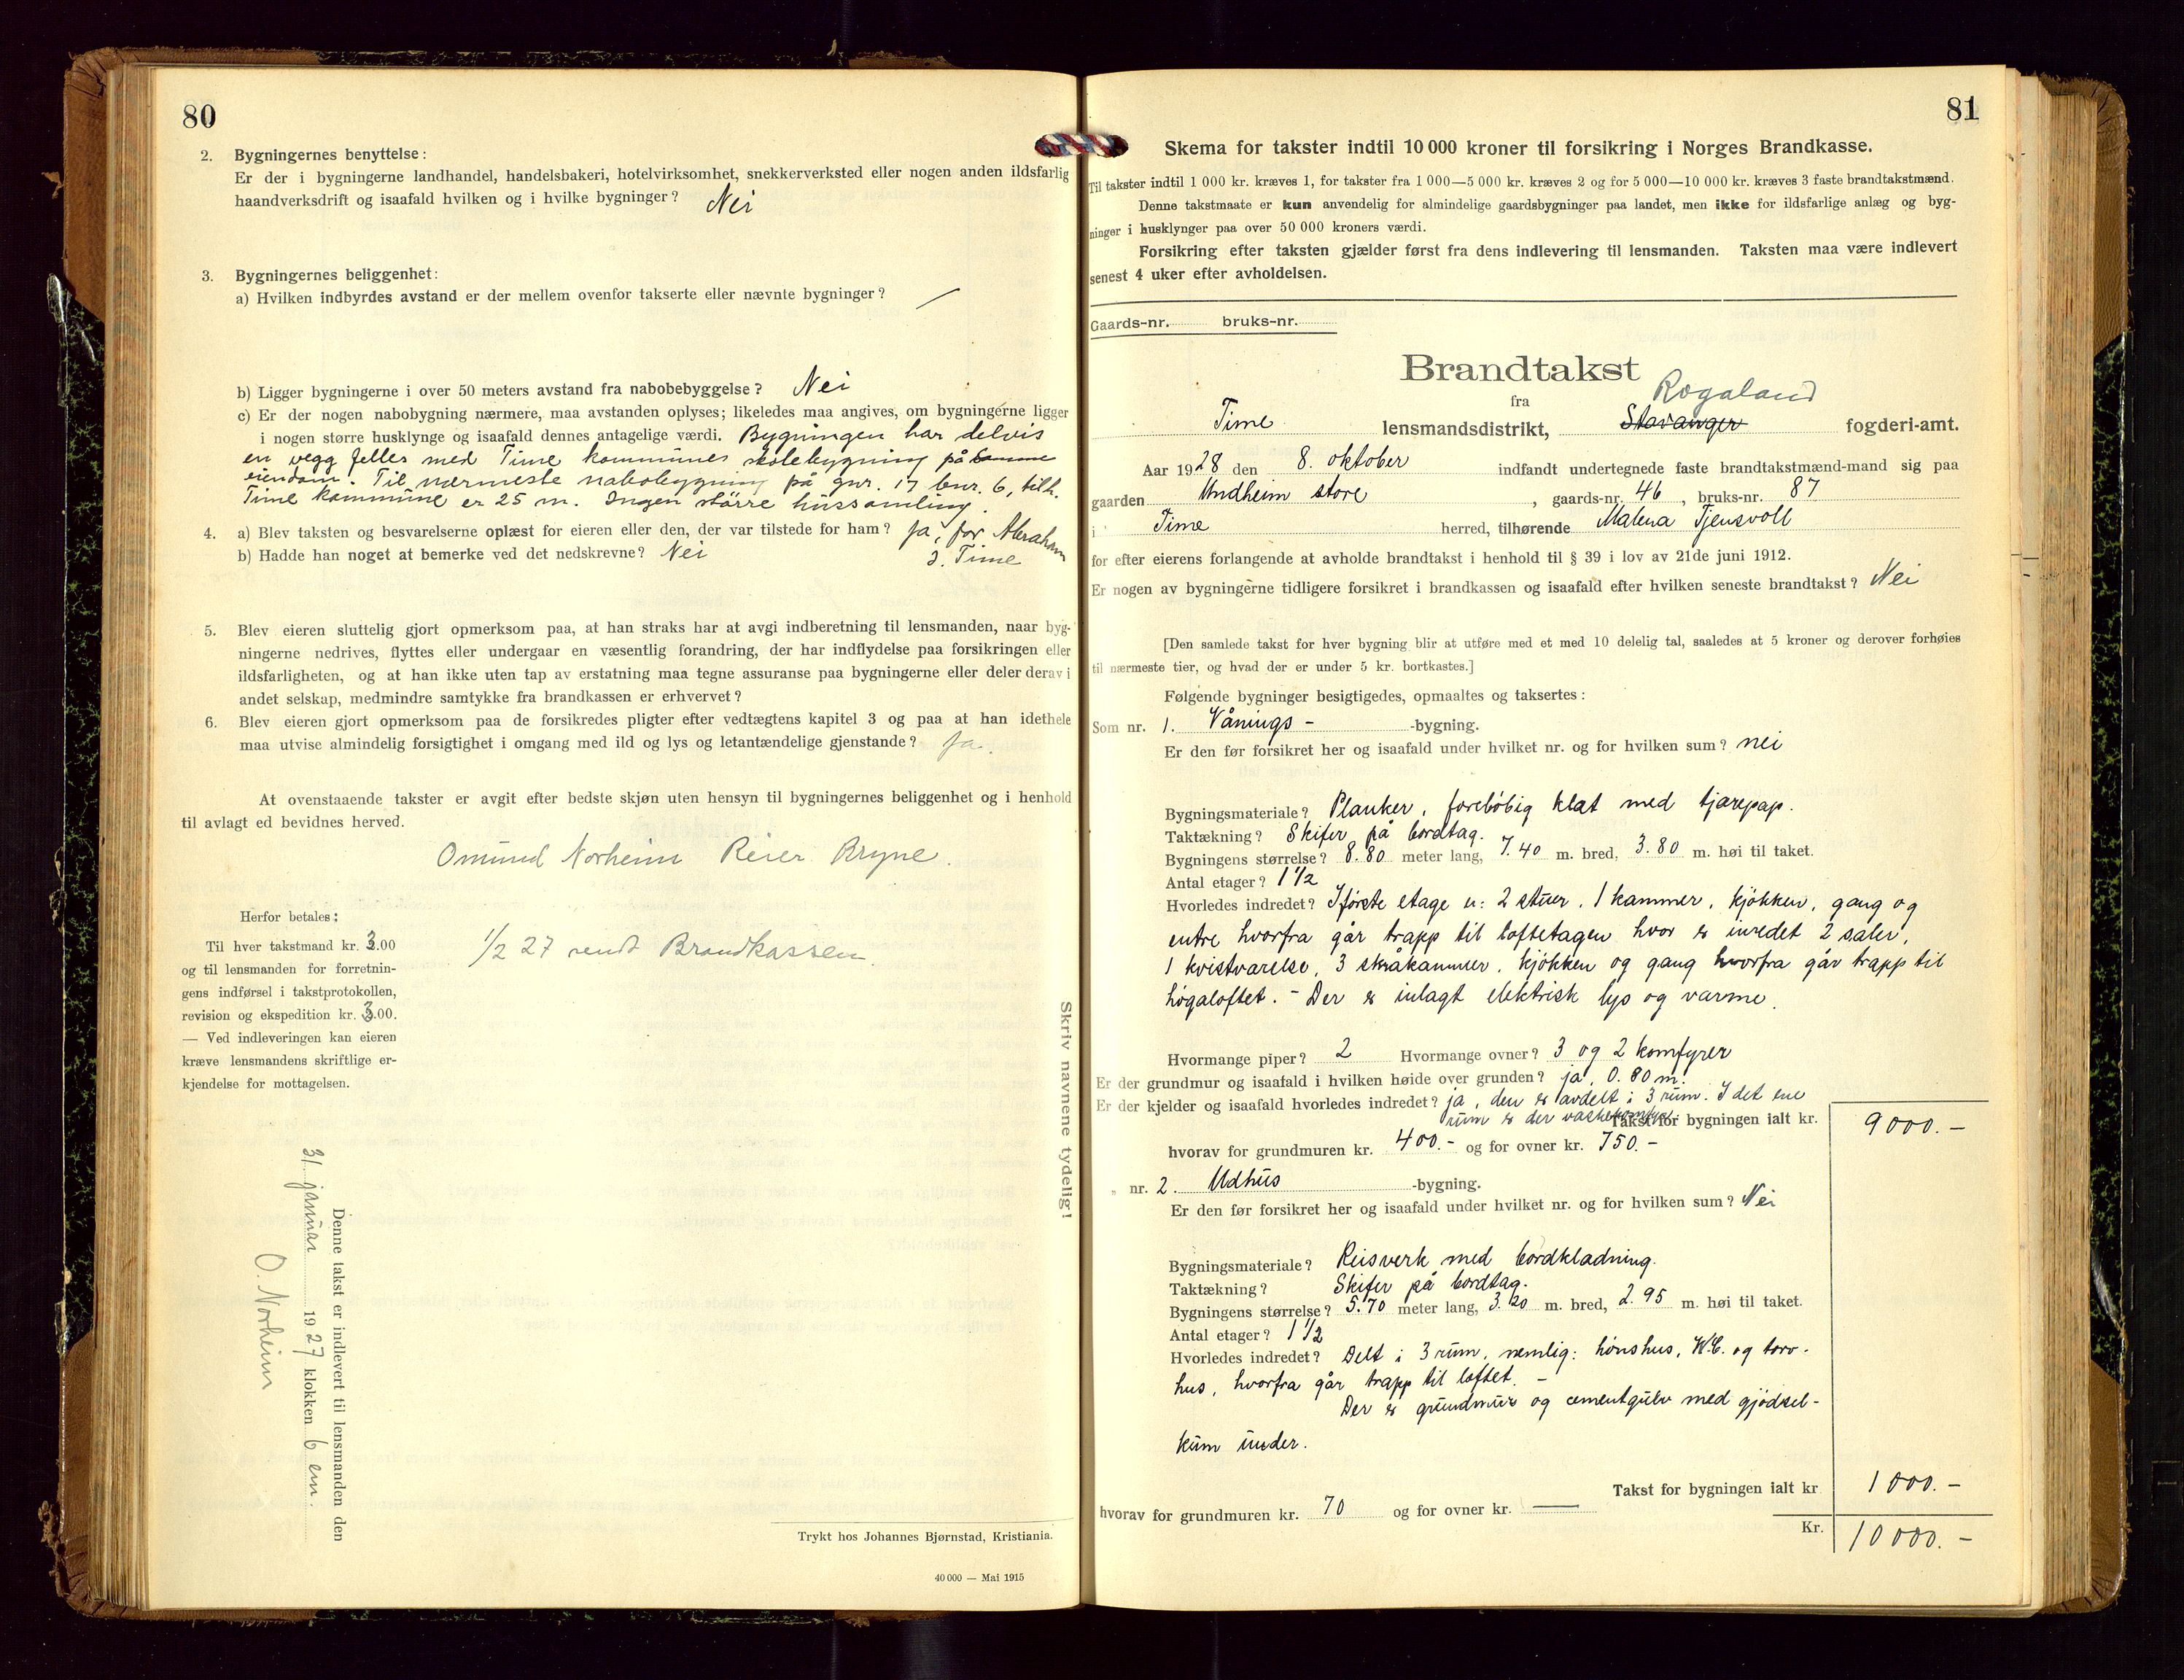 80
2. Bygningernes benyttelse:
Er der i bygningerne landhandel, handelsbakeri, hotelvirksomhet, snekkerverksted eller nogen anden ildsfarlig
haandverksdrift og isaafald hvilken og i hvilke bygninger? Nei
3. Bygningernes beliggenhet:
a) Hvilken indbyrdes avstand er der mellem ovenfor takserte eller nævnte bygninger? —
b) Ligger bygningerne i over 50 meters avstand fra nabobebyggelse? Nei
c) Er der nogen nabobygning nærmere, maa avstanden oplyses; likeledes maa angives, om bygningerne ligger
i nogen større husklynge og isaafald dennes antagelige værdi. Bygningen har delvis
en vegg felles med Time kommunes skolebygning på samme
eiendom. Til nærmeste nabobygning på gnr. 17 bnr. 6, tilh.
Time kommune er 25 m. Ingen större hussamling.
4. a) Blev taksten og besvarelserne oplæst for eieren eller den, der var tilstede for ham? Ja, for Abraham
b) Hadde han noget at bemerke ved det nedskrevne? Nei J. Time
5. Blev eieren sluttelig gjort opmerksom paa, at han straks har at avgi indberetning til lensmanden, naar byg-
ningerne nedrives, flyttes eller undergaar en væsentlig forandring, der har indflydelse paa forsikringen eller
ildsfarligheten, og at han ikke uten tap av erstatning maa tegne assuranse paa bygningerne eller deler derav i
andet selskap, medmindre samtykke fra brandkassen er erhvervet?
6. Blev eieren gjort opmerksom paa de forsikredes pligter efter vedtægtens kapitel 3 og paa at han idethele
maa utvise almindelig forsigtighet i omgang med ild og lys og letantændelige gjenstande? Ja.
At ovenstaaende takster er avgit efter bedste skjøn uten hensyn til bygningernes beliggenhet og i henhold
til avlagt ed bevidnes herved.
Omund Norheim Reier Bryne.
Herfor betales:
Til hver takstmand kr. 3.00
og til lensmanden for forretnin-
gens indførsel i takstprotokollen,
revision og ekspedition kr. 3.00.
— Ved indleveringen kan eieren
kræve lensmandens skriftlige er-
kjendelse for mottagelsen.
1/2 27 sendt Brandkassen.
Skriv navnene tydelig!
Denne takst er indlevert til lensmanden den
31 januar 1927 klokken 6 em.
O. Norheim
Trykt hos Johannes Bjørnstad, Kristiania.
40 000 — Mai 1915
81
Skema for takster indtil 10 000 kroner til forsikring i Norges Brandkasse.
Til takster indtil 1 000 kr. kræves 1, for takster fra 1 000—5 000 kr. kræves 2 og for 5 000—10 000 kr. kræves 3 faste brandtakstmænd.
Denne takstmaate er kun anvendelig for almindelige gaardsbygninger paa landet, men ikke for ildsfarlige anlæg og byg-
ninger i husklynger paa over 50 000 kroners værdi.
Forsikring efter taksten gjælder først fra dens indlevering til lensmanden. Taksten maa være indlevert
senest 4 uker efter avholdelsen.
Gaards-nr. bruks-nr.
Brandtakst
fra Rogaland
Time lensmandsdistrikt, Stavanger fogderi-amt.
Aar 1928 den 8. oktober indfandt undertegnede faste brandtakstmænd-mand sig paa
gaarden Undheim store, gaards-nr. 46, bruks-nr. 87
i Time herred, tilhørende Malena Tjensvoll
for efter eierens forlangende at avholde brandtakst i henhold til § 39 i lov av 21de juni 1912.
Er nogen av bygningerne tidligere forsikret i brandkassen og isaafald efter hvilken seneste brandtakst? Nei
[Den samlede takst for hver bygning blir at utføre med et med 10 delelig tal, saaledes at 5 kroner og derover forhøies
til nærmeste tier, og hvad der er under 5 kr. bortkastes.]
Følgende bygninger besigtigedes, opmaaltes og taksertes:
Som nr. 1. Vånings- -bygning.
Er den før forsikret her og isaafald under hvilket nr. og for hvilken sum? nei
Bygningsmateriale? Planker, forelöbig klæt med tjærepap.
Taktækning? Skifer på bordtag.
Bygningens størrelse? 8.80 meter lang, 7.40 m. bred, 3.80 m. høi til taket.
Antal etager? 1 1/2
Hvorledes indredet? I förste etage er: 2 stuer, 1 kammer, kjökken, gang og
entre hvorfra går trapp til loftetagen hvor er inredet 2 saler,
1 kvistværelse, 3 skråkammer, kjökken og gang hvorfra går trapp til
högaloftet. - Der er inlagt elektrisk lys og varme.
Hvormange piper? 2 Hvormange ovner? 3 og 2 komfyrer
Er der grundmur og isaafald i hvilken høide over grunden? ja, 0.80 m.
Er der kjelder og isaafald hvorledes indredet? ja, den er avdelt i 3 rum. I det ene
rum er der vaskekomfyr. Takst for bygningen ialt kr. 9000.-
hvorav for grundmuren kr. 400.- og for ovner kr. 750.-
„ nr. 2. Udhus -bygning.
Er den før forsikret her og isaafald under hvilket nr. og for hvilken sum? Nei
Bygningsmateriale? Reisverk med bordklædning.
Taktækning? Skifer på bordtag.
Bygningens størrelse? 5.70 meter lang, 3.20 m. bred, 2.95 m. høi til taket.
Antal etager? 1 1/2
Hvorledes indredet? Delt i 3 rum, nemlig: hönshus, W.C. og torv-
hus, hvorfra går trapp til loftet. -
Der er grundmur og cementgulv med gjödsel-
kum under.
Takst for bygningen ialt kr 1000.-
hvorav for grundmuren kr. 70 og for ovner kr. —
Kr. 10000.-